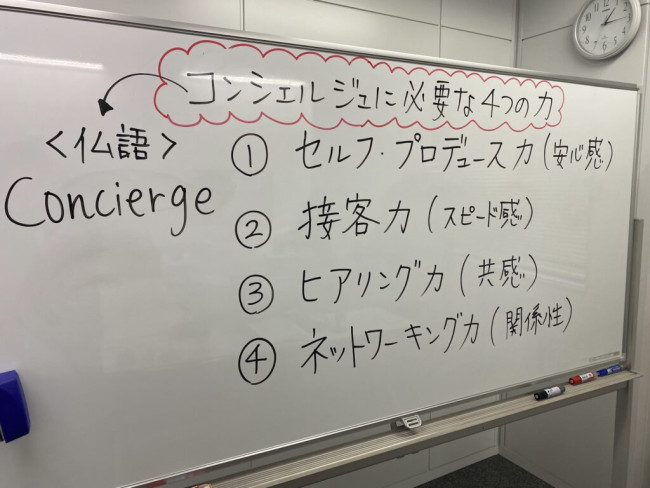 コンシェルジュに必要な4つの力
<仏語>
Concierge
① セルフ・プロデュース力(安心感)
② 接客力(スピード感)
③ ヒアリング力(共感)
④ ネットワーキング力(関係性)